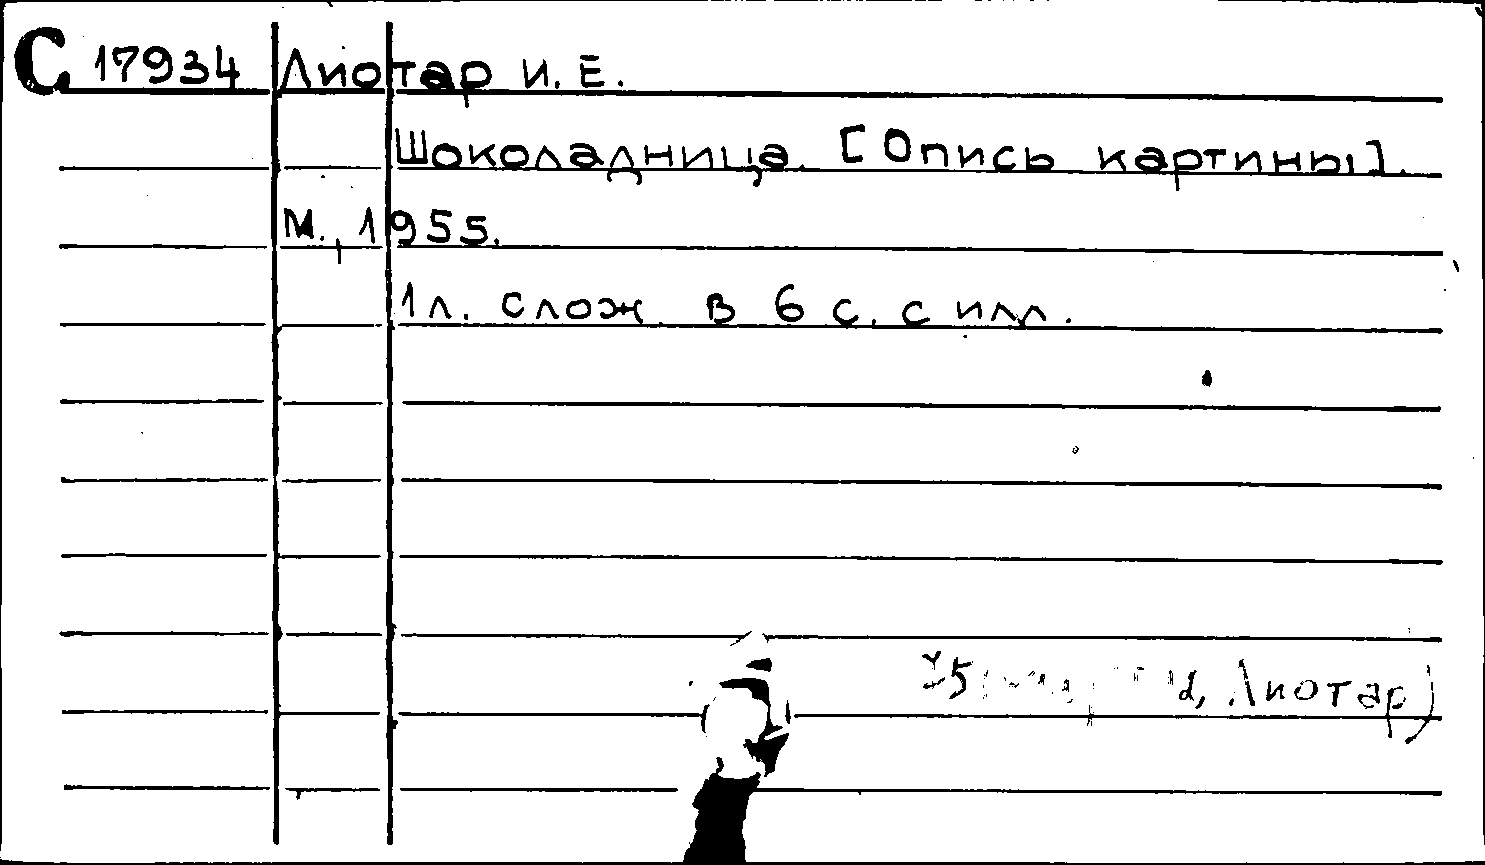 С 17934 Лиотар И. Е.
Шоколадница. [Опись картины].
М., 1955.
1 л. слож. в 6 с. с илл.
Лиотар)